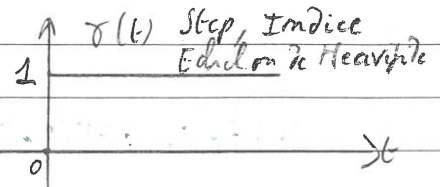 γ(t) Step, Indice
1 Echelon de Heaviside
t
0